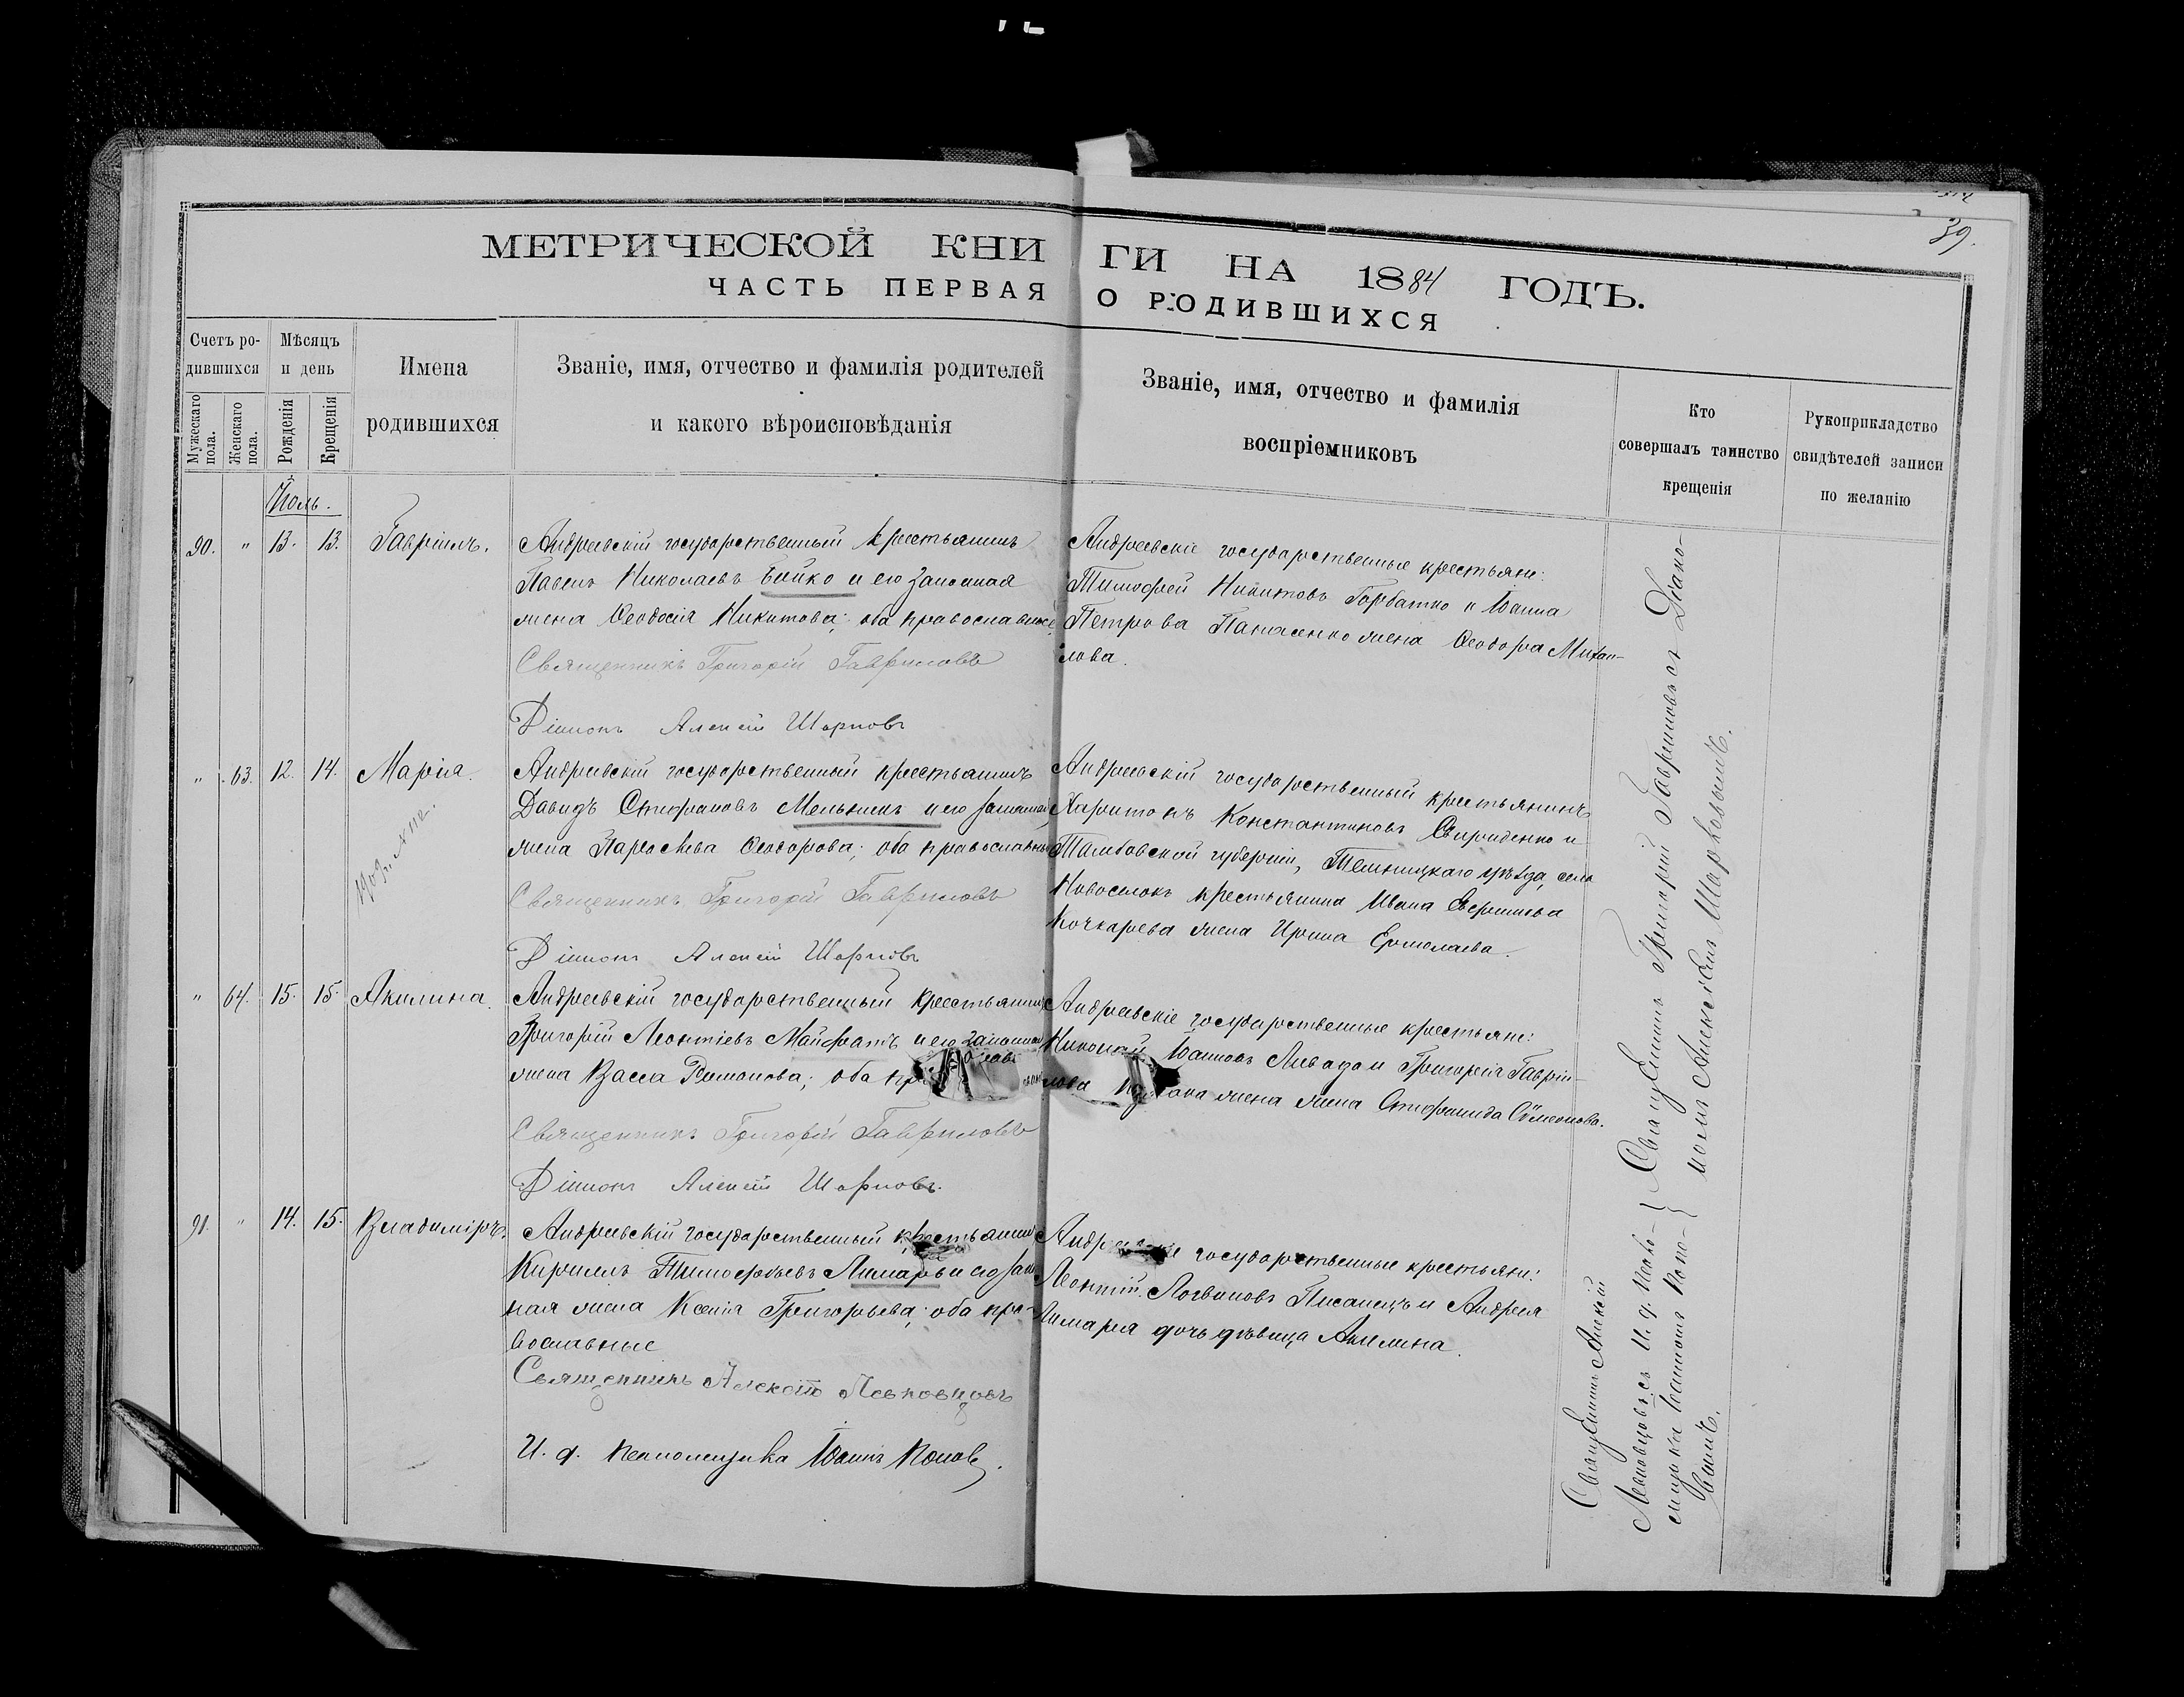 39.
МЕТРИЧЕСКОЙ КНИГИ НА 1884 ГОДЪ.
ЧАСТЬ ПЕРВАЯ О РОДИВШИХСЯ
Счетъ родившихся
Мужескаго пола.
Женскаго пола.
Мѣсяцъ и день
Рожденія
Крещенія
Имена
родившихся
Званіе, имя, отчество и фамилія родителей
и какого вѣроисповѣданія
Званіе, имя, отчество и фамилія
воспріемниковъ
Кто
совершалъ таинство
крещенія
Рукоприкладство
свидѣтелей записи
по желанію
Іюль.
90. " 13. 13. Гавріилъ.
Андреевскій государственный крестьянинъ
Павелъ Николаевъ Бойко и его законная
жена Ѳеодосія Никитова; оба православные
Священникъ Григорій Гавриловъ
Діаконъ Алексій
Андреевскіе государственные крестьяне:
Тимофей Никитовъ Горбатко и Іоанна
Петрова Панасенко жена Ѳеодора Михаи-
лова.
" 63. 12. 14. Марія.
Андреевскій государственный крестьянинъ
Давидъ Стефановъ Мельникъ и его законная
жена Параскева Ѳеодорова; оба православные
Священникъ Григорій Гавриловъ
Діаконъ Алексій
Андреевскій государственный крестьянинъ
Харитонъ Константиновъ Свириденко и
Тамбовской губерніи, уѣзда, села
Новоселокъ крестьянина Ивана
Кочкарева жена Ирина Ермолаева.
" 64. 15. 15. Акилина.
Андреевскій государственный крестьянинъ
Григорій Леонтіевъ и его законная
жена Васса Романова; оба
Священникъ Григорій Гавриловъ
Діаконъ Алексій
Андреевскіе государственные крестьяне:
Іоанновъ и Григорія Гаврій-
лова жена жена Стефанида Сѵмеонова.
91. " 14. 15. Владиміръ.
Андреевскій государственный крестьянинъ
Кириллъ Тимофеевъ Лимарь и его закон
ная жена Ксенія Григорьева; оба пра-
вославные
Священникъ Алексій
И. д. псаломщика Іоаннъ Поповъ.
государственные крестьяне:
Леонтій Логвиновъ Писанецъ и Андрея
Лимаря дочь дѣвица Акилина.
Священникъ Григорій Гавриловъ съ Діако-
номъ Алексіемъ
Священникъ Алексій
съ И. д. псало-
мщика Іоанномъ Попо-
вымъ.